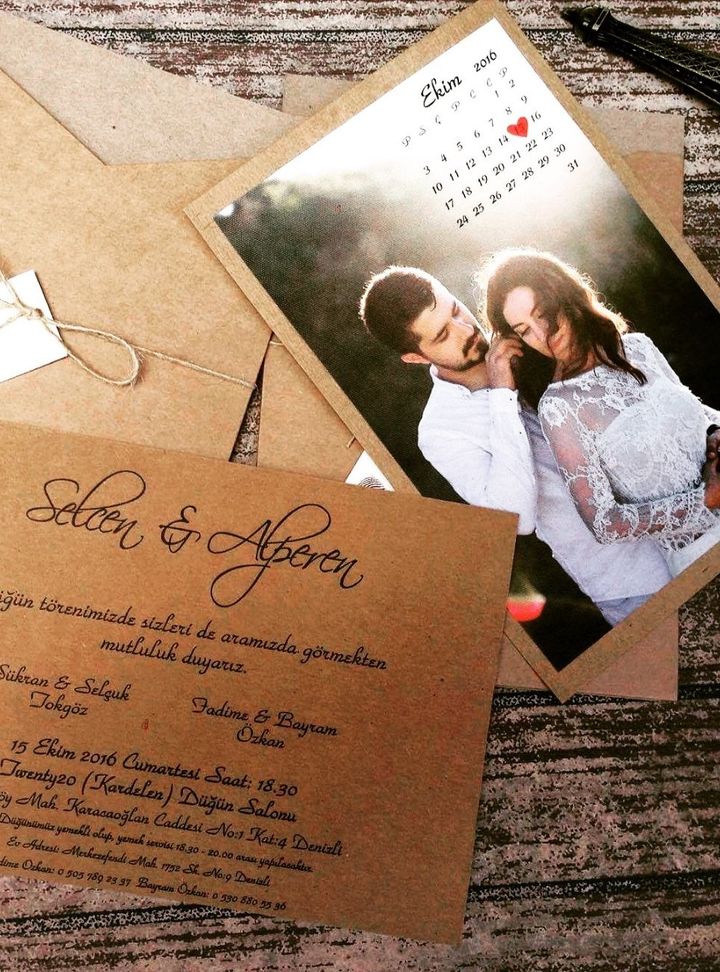 Ekim 2016
P S Ç P C C P
1 2
3 4 5 6 7 8 9
10 11 12 13 14 15 16
17 18 19 20 21 22 23
24 25 26 27 28 29 30
31
Selcen & Alperen
törenimizde sizleri de aramızda görmekten
mutluluk duyarız.
Şükran & Selçuk
Tokgöz
Fadime & Bayram
Özkan
15 Ekim 2016 Cumartesi Saat: 18.30
Twenty20 (Kardelen) Düğün Salonu
Mah. Karacaoğlan Caddesi No:1 Kat:4 Denizli
Düğünümüz yemekli olup, yemek servisi 18.30 - 20.00 arası yapılacaktır.
Ev Adresi: Merkezefendi Mah. 1752 Sk. No:9 Denizli
Özkan: 0 505 789 23 37 Bayram Özkan: 0 530 880 55 36